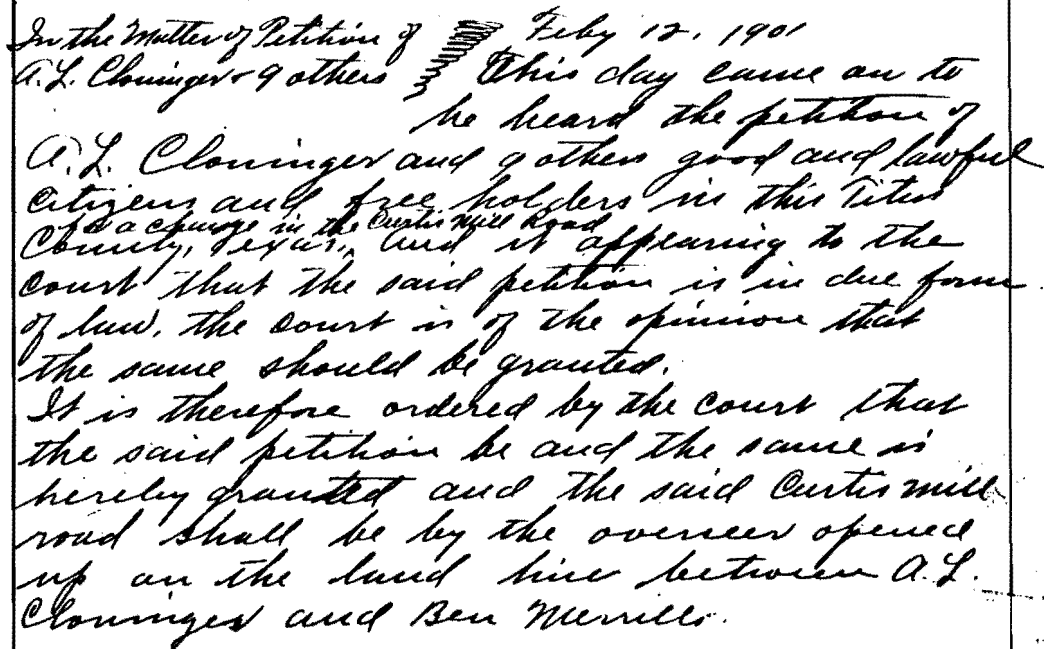 In the Matter of Petition of Feby 12, 1901
A. L. Cloninger & 9 others This day came on to
be heard the petition of
A. L. Cloninger and 9 others good and lawful
citizens and free holders in this Titus
for a change in the Curtis Mill Road
County, Texas, and it appearing to the
court that the said petition is in due form
of law, the court is of the opinion that
the same should be granted.
It is therefore ordered by the court that
the said petition be and the same is
hereby granted and the said Curtis mill
road shall be by the overseer opened
up on the land line between A. L.
Cloninger and Ben Merrills.